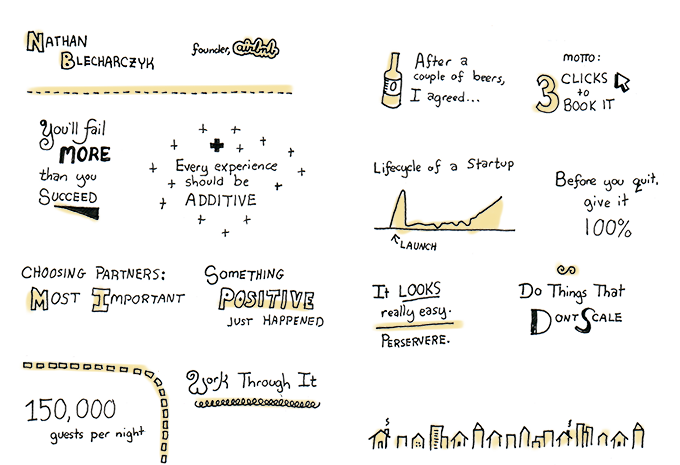 NATHAN
BLECHARCZYK
founder, airbnb
You'll fail
MORE
than you
SUCCEED
Every experience
should be
ADDITIVE
CHOOSING PARTNERS:
MOST IMPORTANT
SOMETHING
POSITIVE
JUST HAPPENED
150,000
guests per night
Work Through It
After a
couple of beers,
I agreed...
MOTTO:
3 CLICKS
to
BOOK IT
Lifecycle of a Startup
LAUNCH
Before you quit,
give it
100%
It LOOKS
really easy.
PERSERVERE.
Do Things That
DONT SCALE